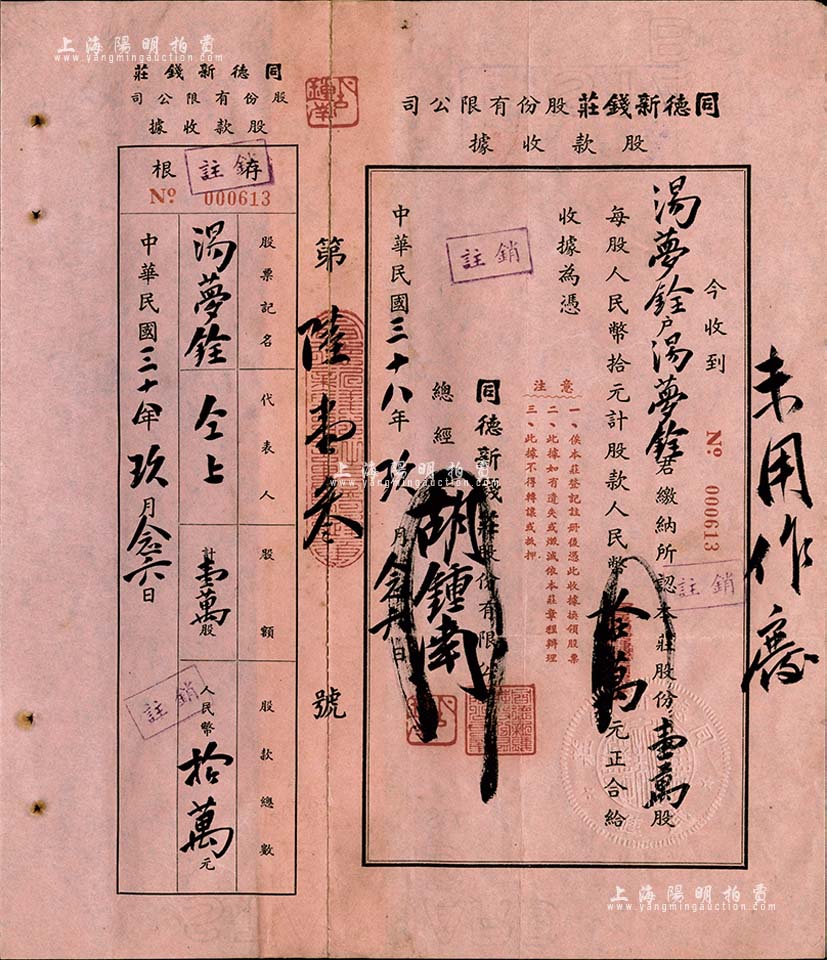 上海陽明拍賣
www.yangmingauction.com
未用作廢
同德新錢莊股份有限公司
股款收據
今收到
No 000613
湯夢銓戶湯夢銓君繳納所認本莊股份壹萬股
每股人民幣拾元計股款人民幣拾萬元正合給
收據為憑
註銷
註銷
注意
一、俟本莊登記註冊後憑此收據換領股票
二、此據如有遺失或燬滅依本莊章程辦理
三、此據不得轉讓或抵押
同德新錢莊股份有限公
總經
胡鍾南
中華民國三十八年玖月念六日
第陸壹叁號
同德新錢莊
股份有限公司
股款收據
存根
註銷
No 000613
股票記名 代表人 股額 股款總數
湯夢銓 仝上 計壹萬股 人民幣拾萬元
註銷
中華民國三十八年玖月念六日
上海陽明拍賣
www.yangmingauction.com
上海陽明拍賣
www.yangmingauction.com